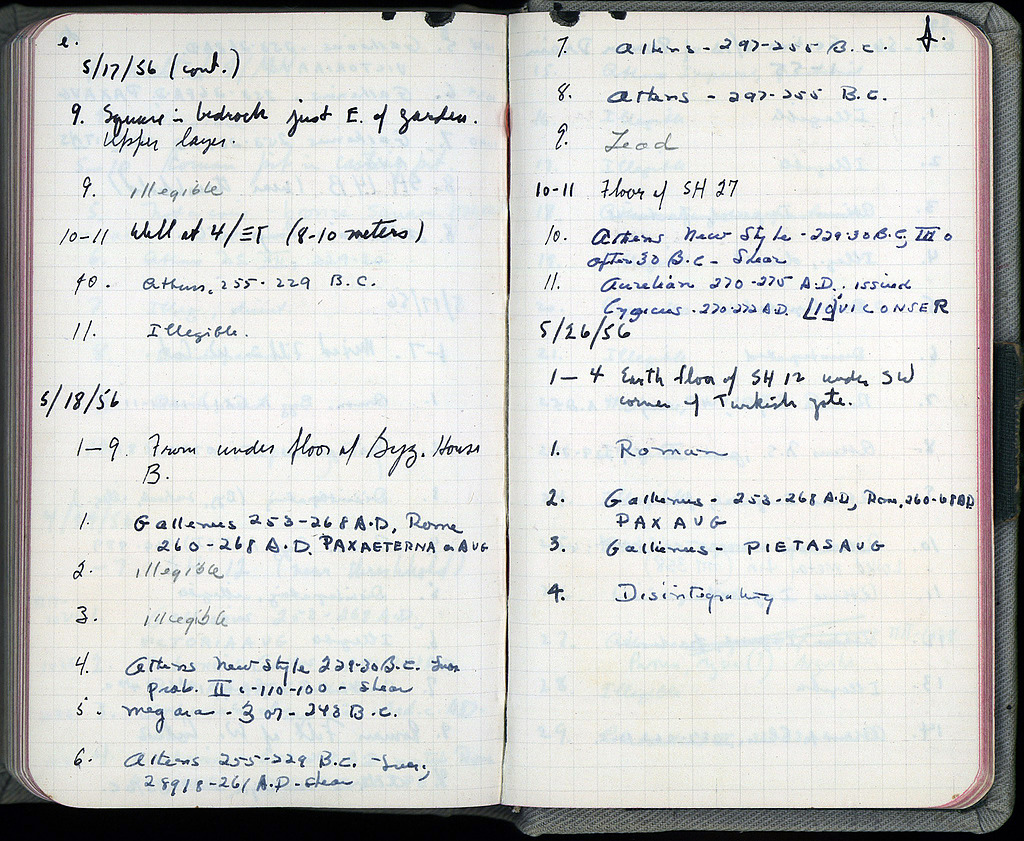 e.
5/17/56 (cont.)
9. Square in bedrock just E. of garden.
Upper layer.
9. illegible
10-11 Well at 4/ΞΓ (8-10 meters)
10. Athens, 255-229 B.C.
11. Illegible.
5/18/56
1-9. From under floor of Byz. House
B.
1. Gallienus 253-268 A.D., Rome
260-268 A.D. PAXAETERNA AUG
2. illegible
3. illegible
4. Athens New Style 229-30 B.C.
prob. II c. 110-100 - Shear
5. Megara - 307-243 B.C.
6. Athens 255-229 B.C.
261 A.D. - Shear
f.
7. Athens - 297-255 B.C.
8. Athens - 297-255 B.C.
9. Lead
10-11 Floor of SH 27
10. Athens New Style - 229-30 B.C., III
after 30 B.C - Shear
11. Aurelian 270-275 A.D., issued
Cyzicus - 270-272 A.D. [IO]VI CONSER
5/26/56
1-4 Earth floor of SH 12 under SW
corner of Turkish gate.
1. Roman
2. Gallienus - 253-268 A.D., Rom, 260-68 AD
PAX AUG
3. Gallienus - PIETAS AUG
4. Disintegrating